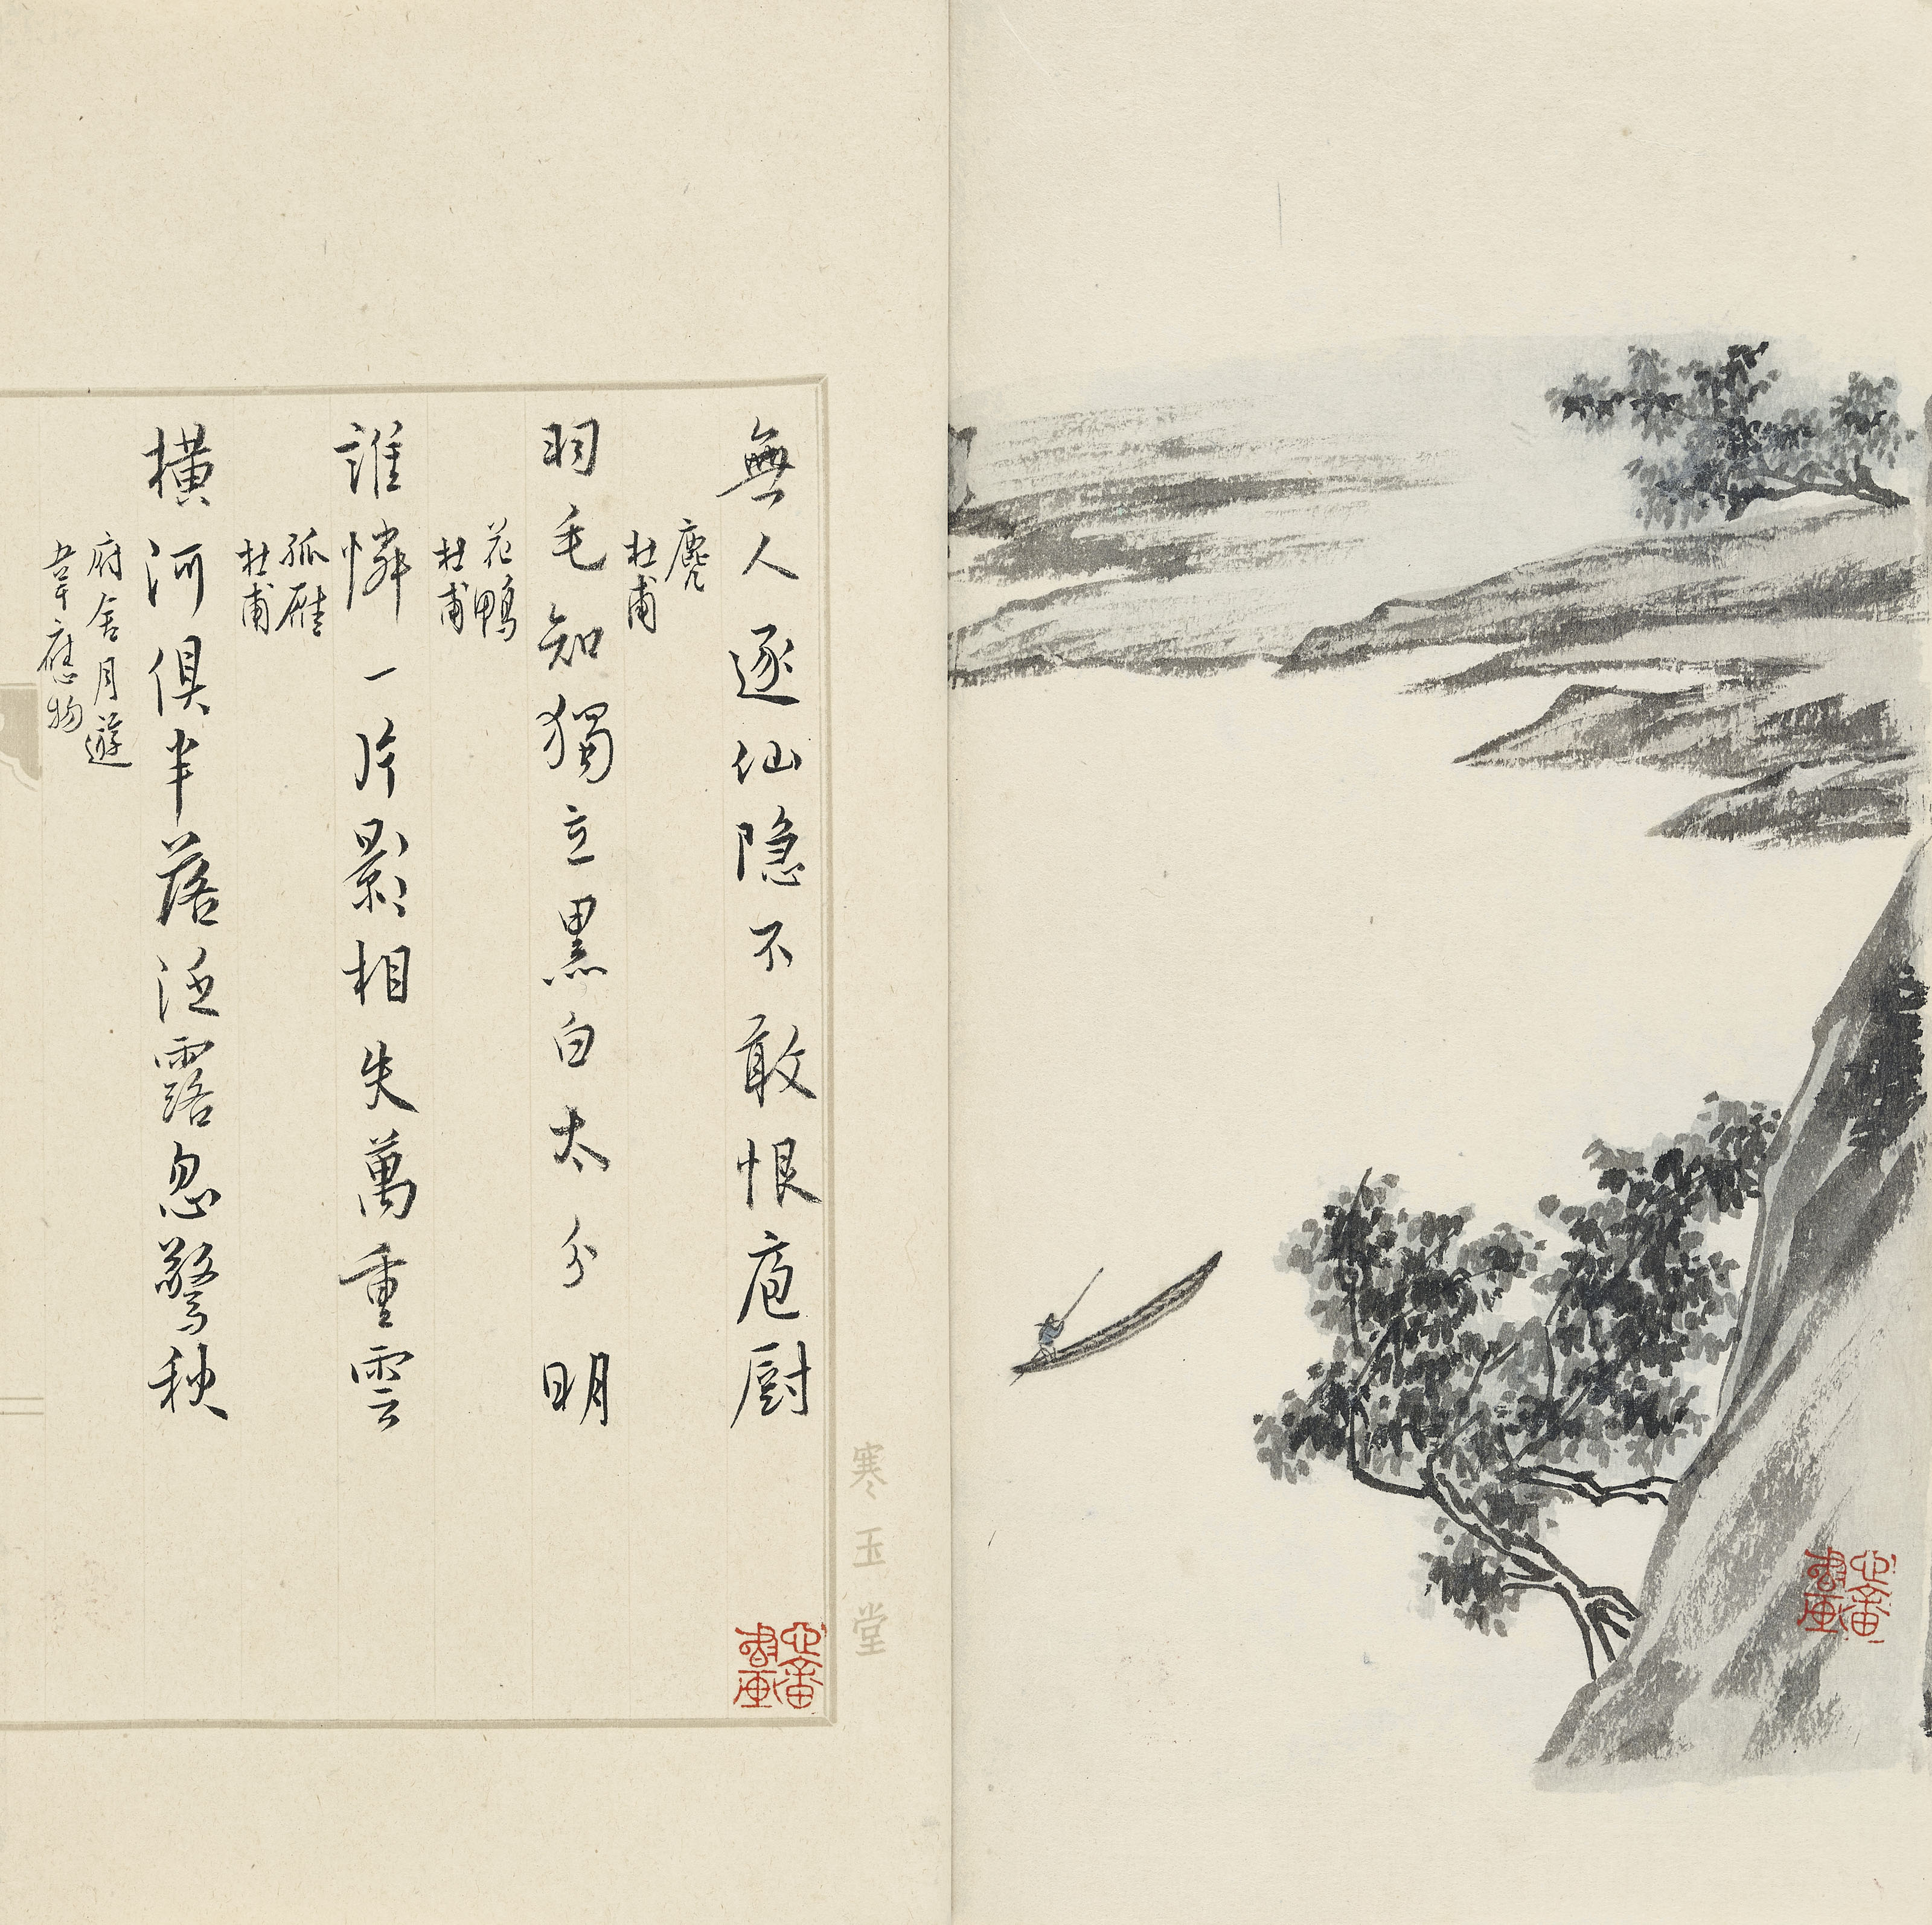 寒玉堂
無人逐仙隐不敢恨庖厨
麂
杜甫
羽毛知獨立黑白太分明
花鴨
杜甫
誰憐一片影相失萬重雲
孤雁
杜甫
横河俱半落泛露忽驚秋
府舍月遊
韋應物
心畬書畫
心畬書畫